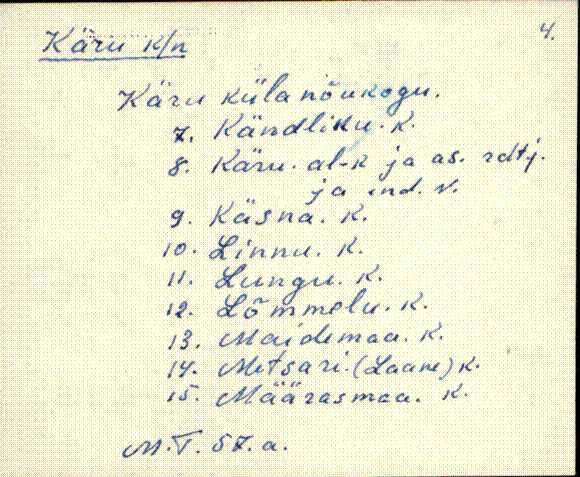 4.
Käru k/n
Käru külanõukogu.
7. Kändliku. k.
8. Käru. al-k ja as. rdtj.
ja ind. v.
9. Käsna. k.
10. Linnu. k.
11. Lungu. k.
12. Lõmmelu. k.
13. Maidemaa. k.
14. Metsari. (Laane) k.
15. Määrasmaa. k.
M.T. 57. a.